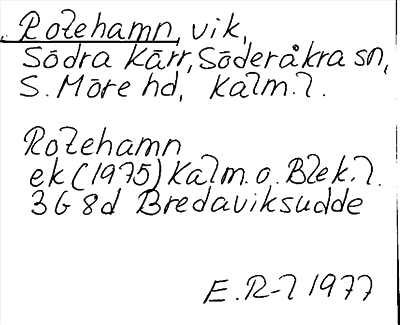 Rotehamn, vik,
Södra Kärr, Söderåkra sn,
S. Möre hd, Kalm.l.
Rotehamn
ek (1975) Kalm. o. Blek.l.
3G 8d Bredaviksudde
E. R-l 1977